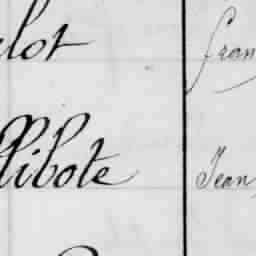 elot fran
llibote Jean